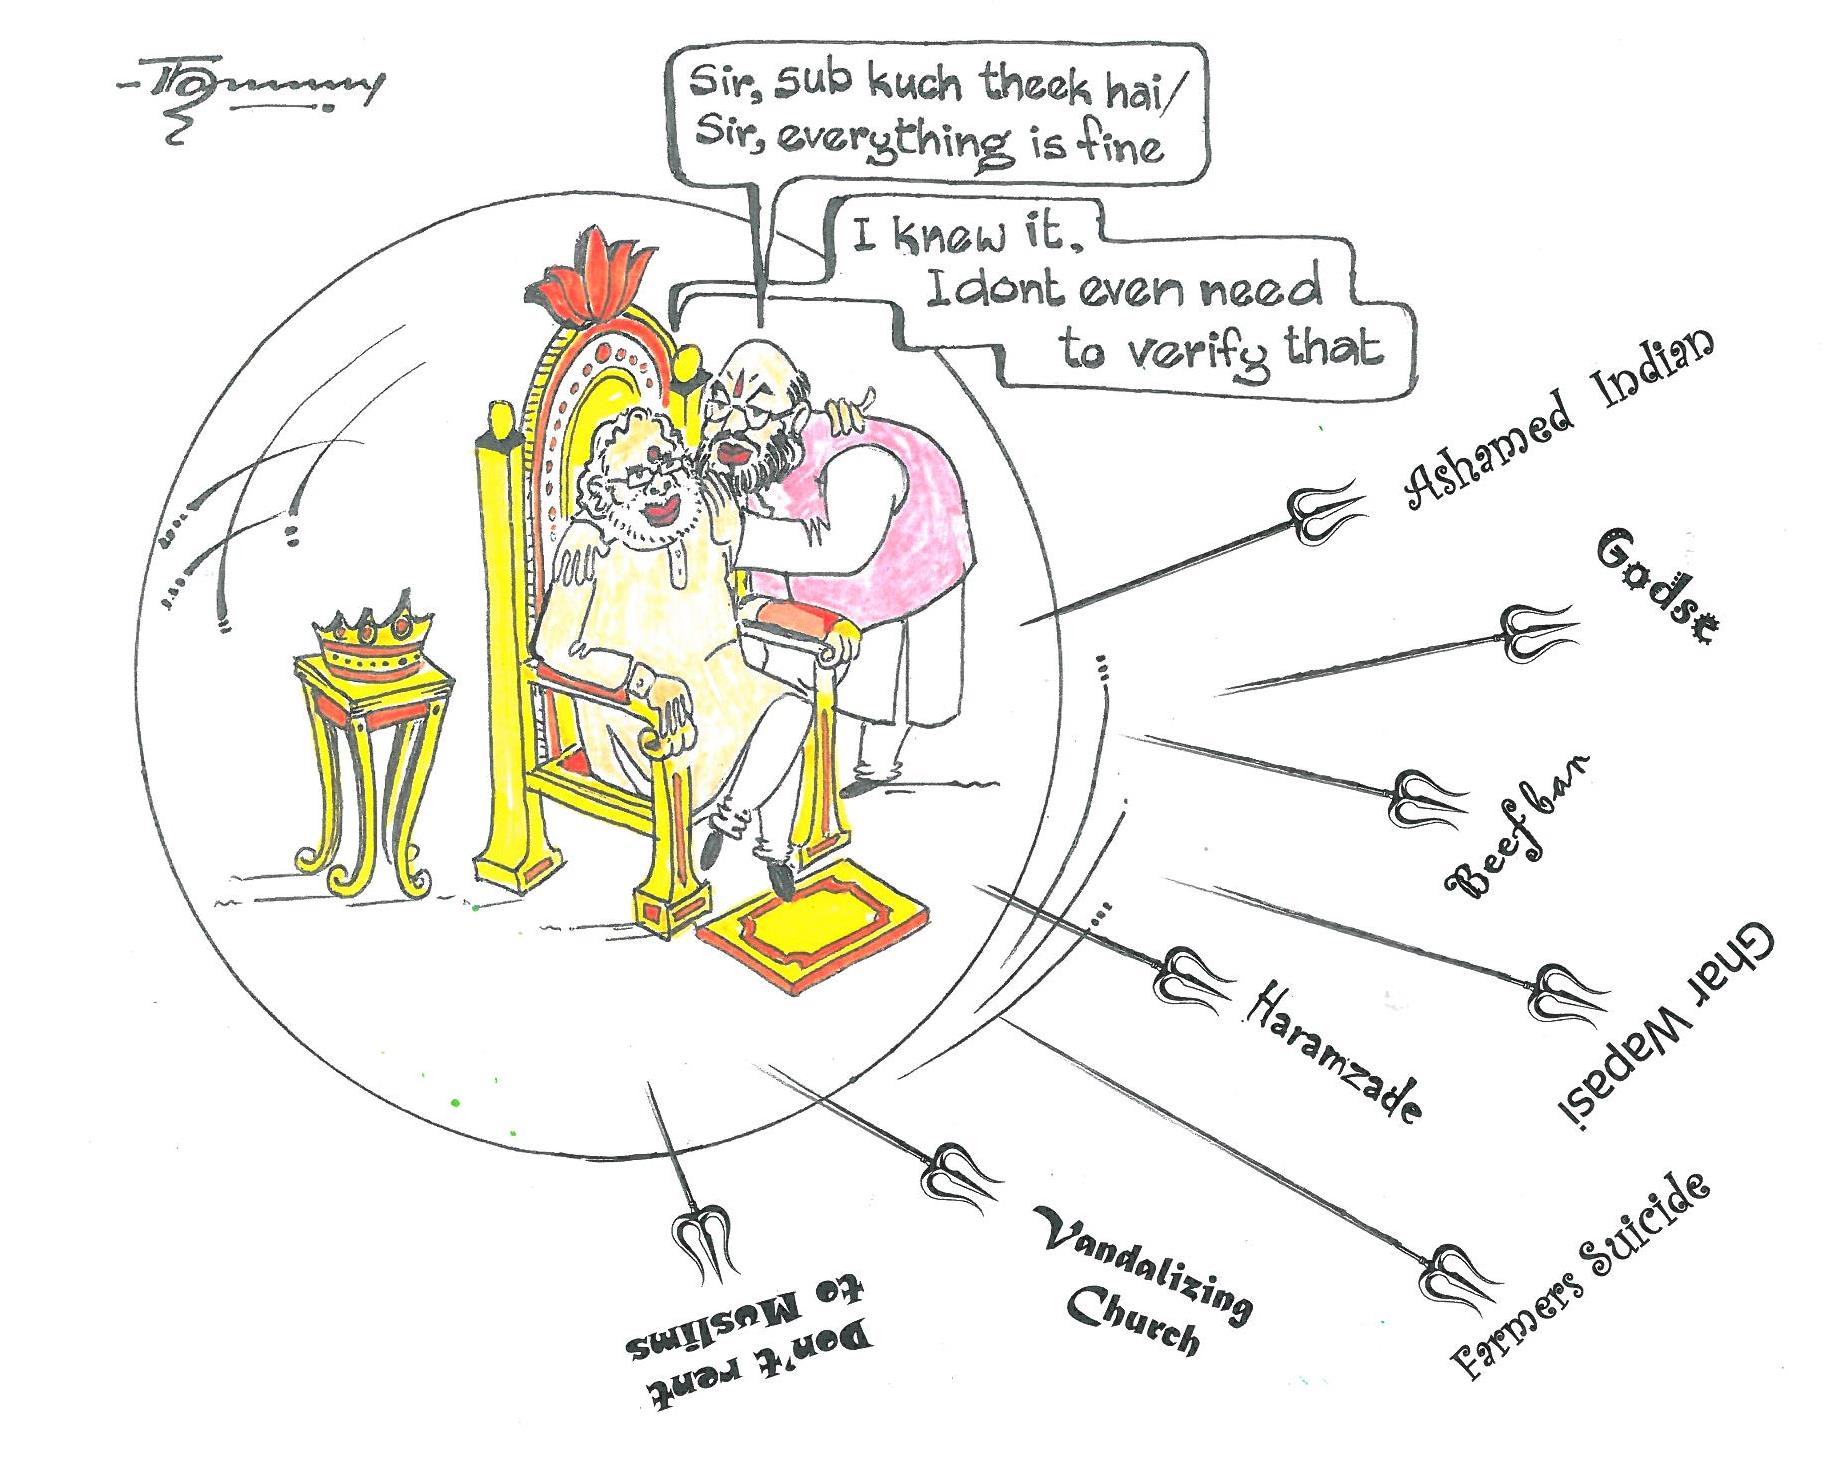 Tommy
Sir, sub kuch theek hai/
Sir, everything is fine
I knew it.
I dont even need
to verify that
Ashamed Indian
Godse
Beef ban
Ghar Wapasi
Haramzade
Farmers Suicide
Vandalizing
Church
Don't rent
to Muslims